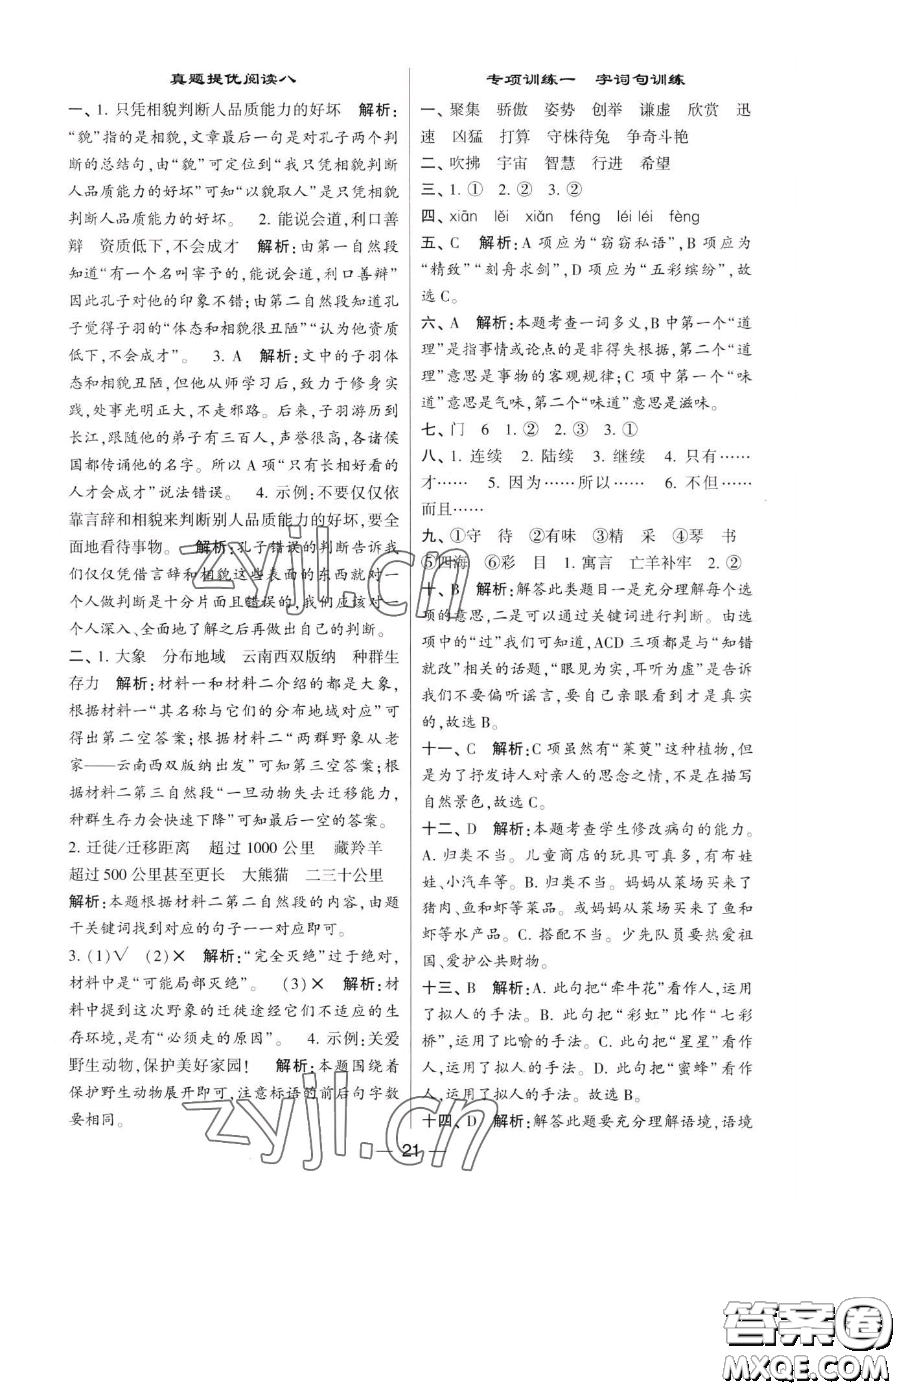 真题提优阅读八
一、1. 只凭相貌判断人品质能力的好坏　解析:
“貌”指的是相貌,文章最后一句是对孔子两个判
断的总结句,由“貌”可定位到“我只凭相貌判断
人品质能力的好坏”可知“以貌取人”是只凭相貌
判断人品质能力的好坏。　2. 能说会道,利口善
辩　资质低下,不会成才　解析:由第一自然段
知道“有一个名叫宰予的,能说会道,利口善辩”
因此孔子对他的印象不错;由第二自然段知道孔
子觉得子羽的“体态和相貌很丑陋”“认为他资质
低下,不会成才”。　3. A　解析:文中的子羽体
态和相貌丑陋,但他从师学习后,致力于修身实
践,处事光明正大,不走邪路。后来,子羽游历到
长江,跟随他的弟子有三百人,声誉很高,各诸侯
国都传诵他的名字。所以 A 项“只有长相好看的
人才会成才”说法错误。　4. 示例:不要仅仅依
靠言辞和相貌来判断别人品质能力的好坏,要全
面地看待事物。　解析:孔子错误的判断告诉我
们仅仅凭借言辞和相貌这些表面的东西就对一
个人做判断是十分片面且错误的,我们应该对一
个人深入、全面地了解之后再做出自己的判断。
二、1. 大象　分布地域　云南西双版纳　种群生
存力　解析:材料一和材料二介绍的都是大象,
根据材料一“其名称与它们的分布地域对应”可
得出第二空答案;根据材料二“两群野象从老
家——云南西双版纳出发”可知第三空答案;根
据材料二第三自然段“一旦动物失去迁移能力,
种群生存力会快速下降”可知最后一空的答案。
2. 迁徙/迁移距离　超过 1000 公里　藏羚羊
超过 500 公里甚至更长　大熊猫　二三十公里
解析:本题根据材料二第二自然段的内容,由题
干关键词找到对应的句子一一对应即可。
3. (1)√　(2)×　解析:“完全灭绝”过于绝对,
材料中是“可能局部灭绝”。　(3)×　解析:材
料中提到这次野象的迁徙途经它们不适应的生
存环境,是有“必须走的原因”。　4. 示例:关爱
野生动物,保护美好家园!　解析:本题围绕着
保护野生动物展开即可,注意标语的前后句字数
要相同。
专项训练一　字词句训练
一、聚集　骄傲　姿势　创举　谦虚　欣赏　迅
速　凶猛　打算　守株待兔　争奇斗艳
二、吹拂　宇宙　智慧　行进　希望
三、1. ①　2. ②　3. ②
四、xiān　lěi　xiǎn　féng　léi léi　fèng
五、C　解析:A 项应为“窃窃私语”,B 项应为
“精致”“刻舟求剑”,D 项应为“五彩缤纷”,故
选 C。
六、A　解析:本题考查一词多义,B 中第一个“道
理”是指事情或论点的是非得失根据,第二个“道
理”意思是事物的客观规律;C 项中第一个“味
道”意思是气味,第二个“味道”意思是滋味。
七、门　6　1. ②　2. ③　3. ①
八、1. 连续　2. 陆续　3. 继续　4. 只有……
才……　5. 因为……所以……　6. 不但……
而且……
九、①守　待　②有味　③精　采　④琴　书
⑤四海　⑥彩　目　1. 寓言　亡羊补牢　2. ②
十、B　解析:解答此类题目一是充分理解每个选
项的意思,二是可以通过关键词进行判断。由选
项中的“过”我们可知道,ACD 三项都是与“知错
就改”相关的话题,“眼见为实,耳听为虚”是告诉
我们不要偏听谣言,要自己亲眼看到才是真实
的,故选 B。
十一、C　解析:C 项虽然有“茱萸”这种植物,但
是为了抒发诗人对亲人的思念之情,不是在描写
自然景色,故选 C。
十二、D　解析:本题考查学生修改病句的能力。
A. 归类不当。儿童商店的玩具可真多,有布娃
娃、小汽车等。B. 归类不当。妈妈从菜场买来了
猪肉、鱼和虾等菜品。或妈妈从菜场买来了鱼和
虾等水产品。C. 搭配不当。少先队员要热爱祖
国、爱护公共财物。
十三、B　解析:A. 此句把“牵牛花”看作人,运用
了拟人的手法。B. 此句把“彩虹”比作“七彩
桥”,运用了比喻的手法。C. 此句把“星星”看作
人,运用了拟人的手法。D. 此句把“蜜蜂”看作
人,运用了拟人的手法。故选 B。
十四、D　解析:解答此题要充分理解语境,语境
— 21 —
zyjl.cn
zyjl.cn
答案圈
MXQE.COM